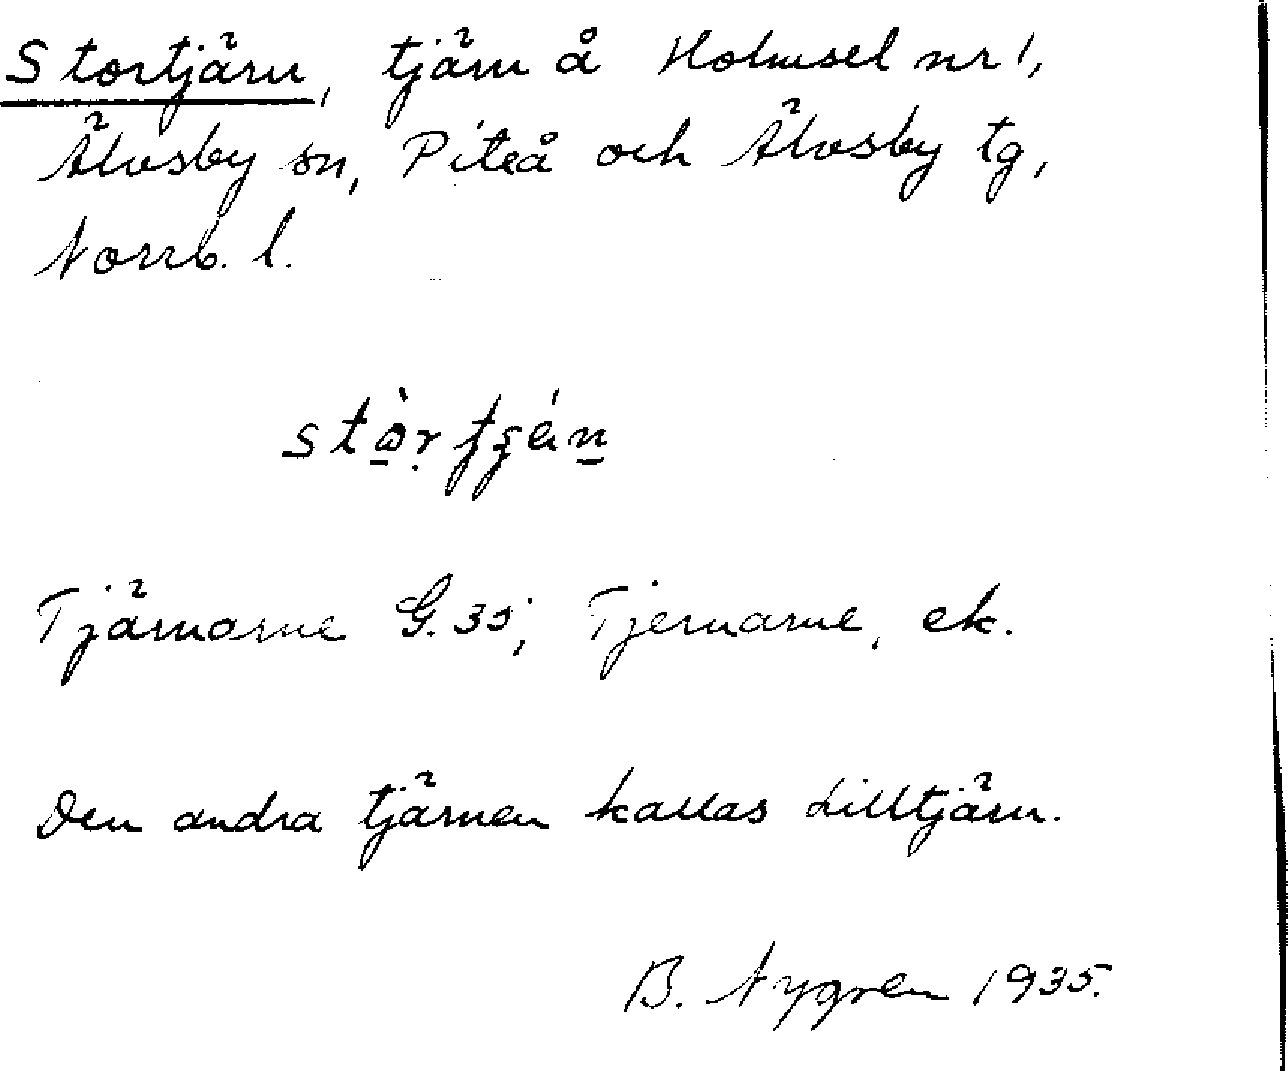 Stortjärn, tjärn å Holmsel nr 1,
Älvsby sn, Piteå och Älvsby tg,
Norrb. l.
Tjärnarne G. 35; Tjernarne, ek.
Den andra tjärnen kallas Lilltjärn.
B. Nygren 1935.